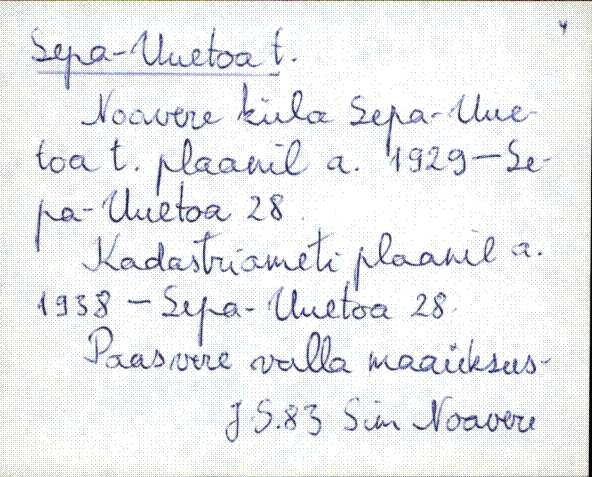 Sepa-Uuetoa t.
Noavere küla Sepa-Uue-
toa t. plaanil a. 1929 – Se-
pa-Uuetoa 28.
Kadastriameti plaanil a.
1938 – Sepa-Uuetoa 28.
Paasvere valla maaüksus-
J S.83 Sim Noavere